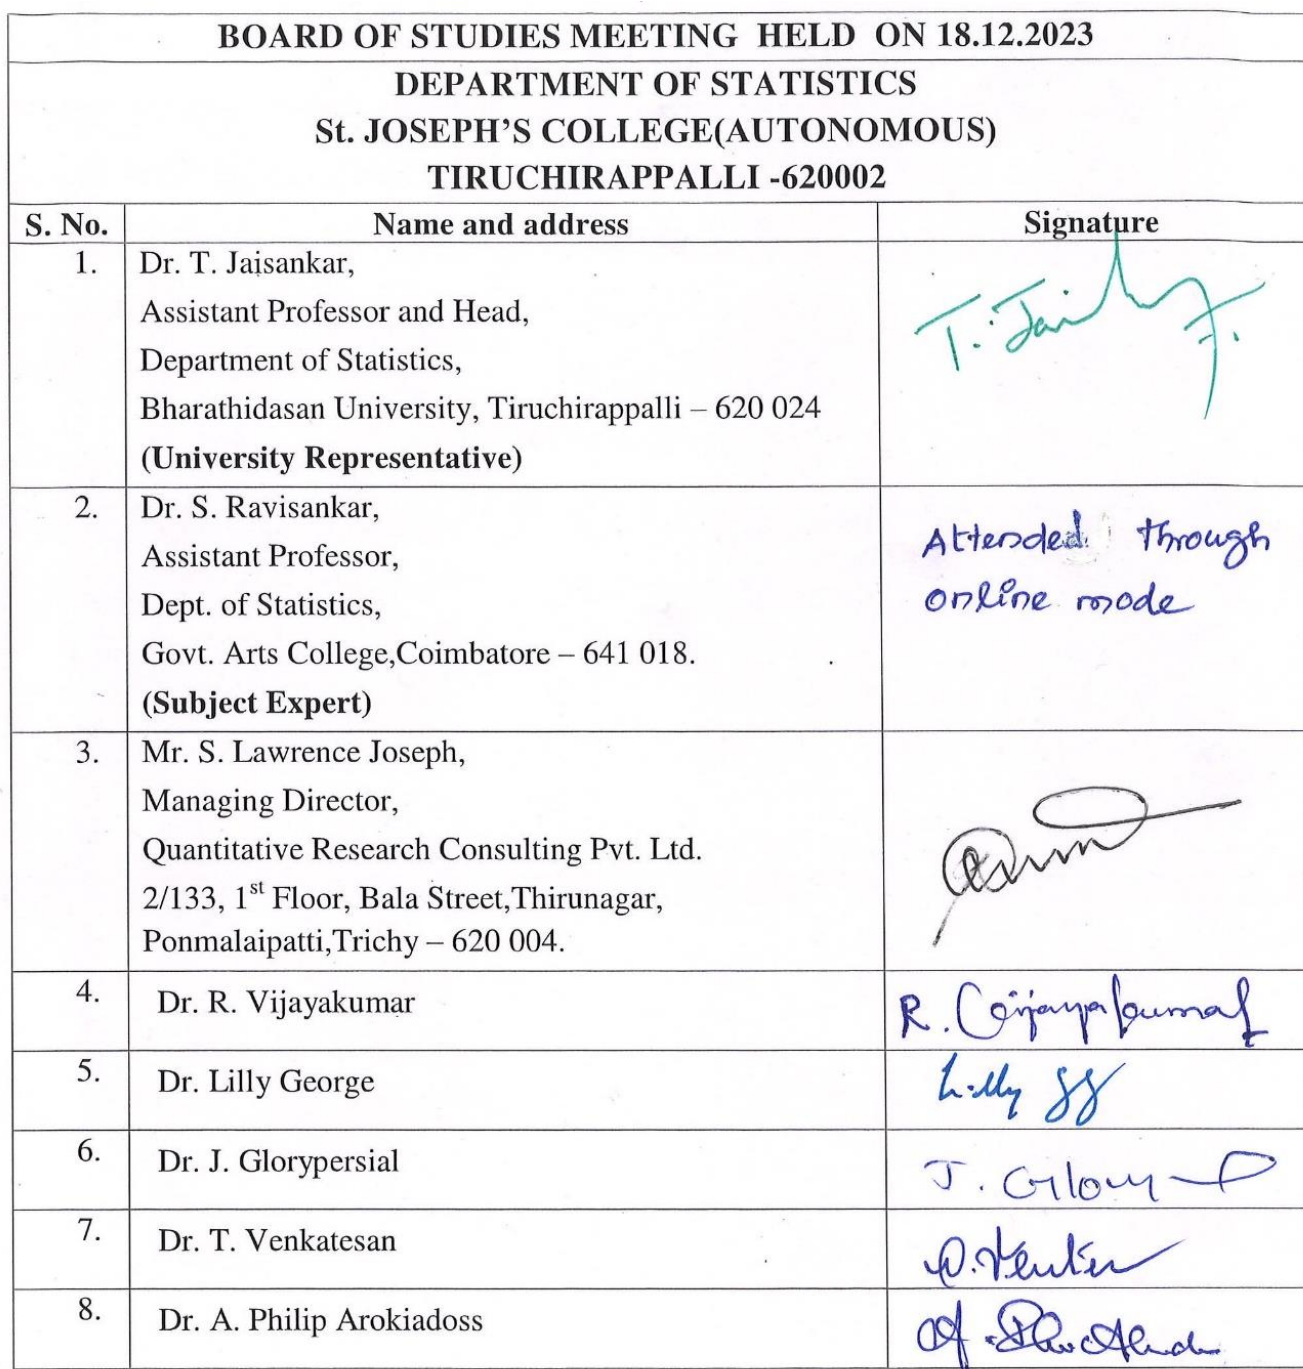 BOARD OF STUDIES MEETING HELD ON 18.12.2023
DEPARTMENT OF STATISTICS
St. JOSEPH'S COLLEGE(AUTONOMOUS)
TIRUCHIRAPPALLI -620002
S. No. Name and address Signature
1. Dr. T. Jaisankar,
Assistant Professor and Head,
Department of Statistics,
Bharathidasan University, Tiruchirappalli – 620 024
(University Representative)
2. Dr. S. Ravisankar,
Assistant Professor,
Dept. of Statistics,
Govt. Arts College,Coimbatore – 641 018.
(Subject Expert)
Attended through
online mode
3. Mr. S. Lawrence Joseph,
Managing Director,
Quantitative Research Consulting Pvt. Ltd.
2/133, 1st Floor, Bala Street,Thirunagar,
Ponmalaipatti,Trichy – 620 004.
4. Dr. R. Vijayakumar R. Vijayakumar
5. Dr. Lilly George Lilly
6. Dr. J. Glorypersial J. Glory
7. Dr. T. Venkatesan
8. Dr. A. Philip Arokiadoss